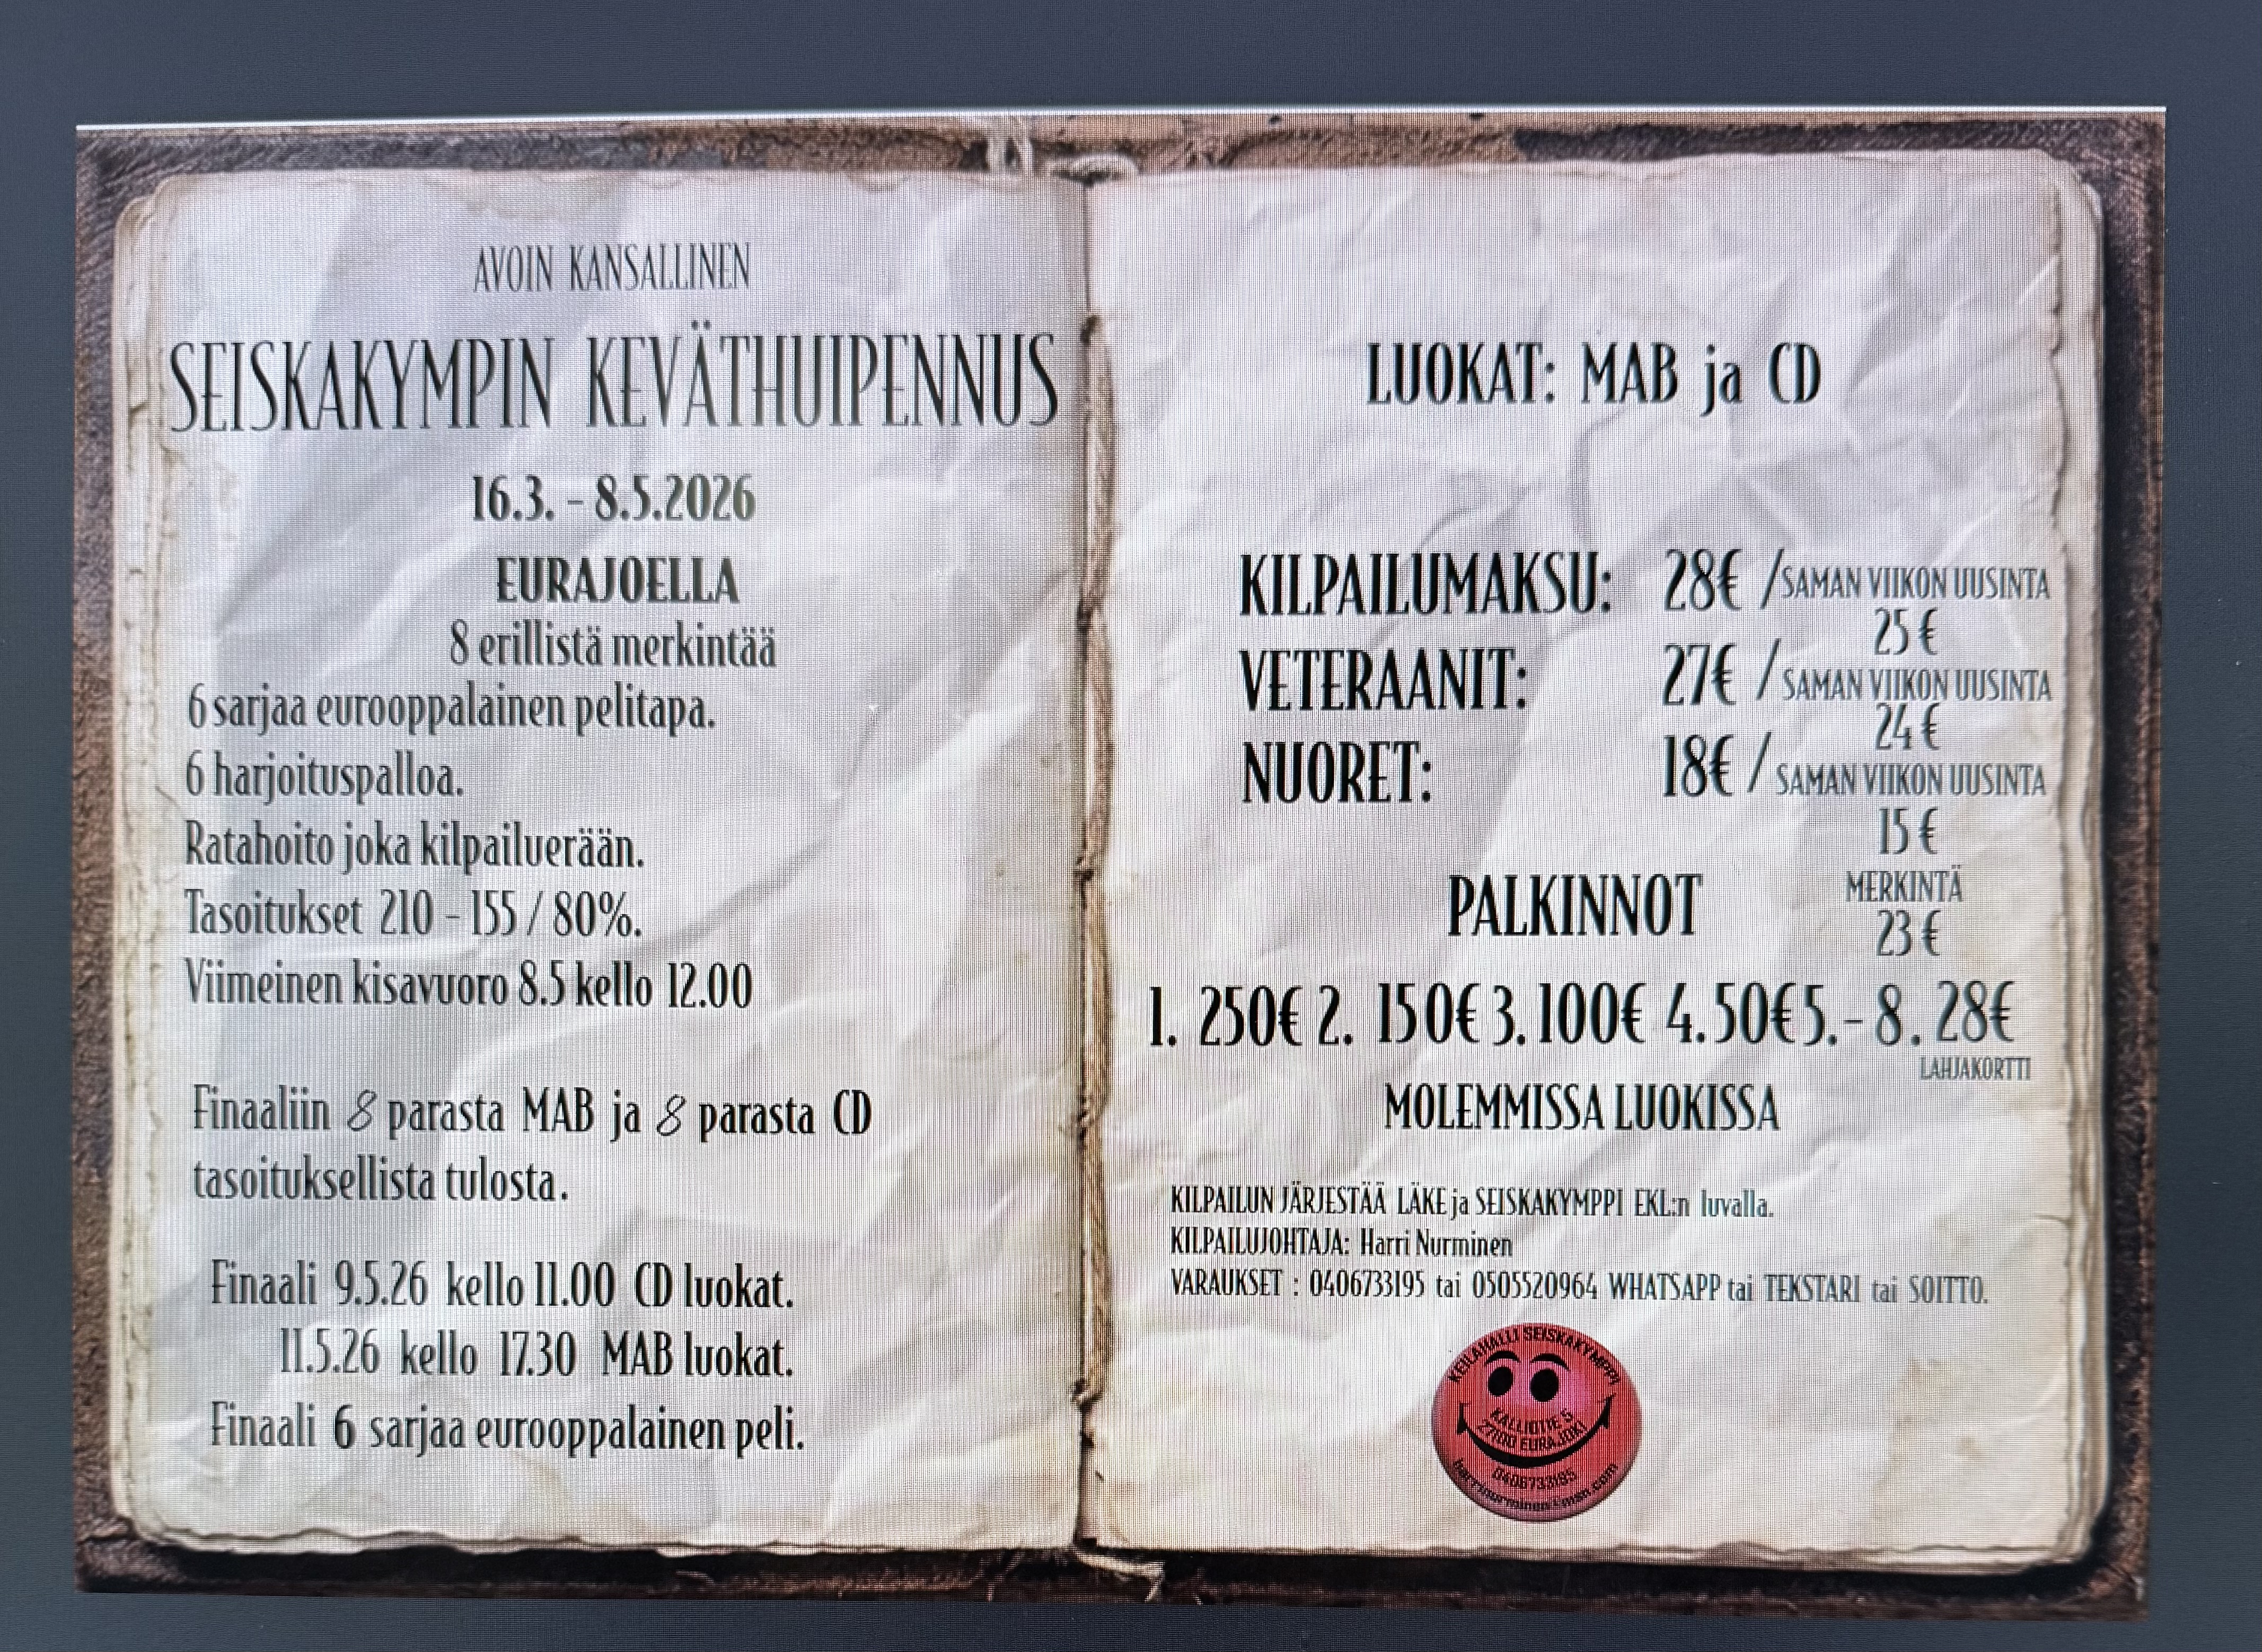 AVOIN KANSALLINEN
SEISKAKYMPIN KEVÄTHUIPENNUS
16.3. - 8.5.2026
EURAJOELLA
8 erillistä merkintää
6 sarjaa eurooppalainen pelitapa.
6 harjoituspalloa.
Ratahoito joka kilpailuerään.
Tasoitukset 210 - 155 / 80%.
Viimeinen kisavuoro 8.5 kello 12.00
Finaaliin 8 parasta MAB ja 8 parasta CD
tasoituksellista tulosta.
Finaali 9.5.26 kello 11.00 CD luokat.
11.5.26 kello 17.30 MAB luokat.
Finaali 6 sarjaa eurooppalainen peli.
LUOKAT: MAB ja CD
KILPAILUMAKSU: 28€ / SAMAN VIIKON UUSINTA
25 €
VETERAANIT: 27€ / SAMAN VIIKON UUSINTA
24 €
NUORET: 18€ / SAMAN VIIKON UUSINTA
15 €
MERKINTÄ
23 €
PALKINNOT
1. 250€ 2. 150€ 3. 100€ 4. 50€ 5. - 8. 28€
LAHJAKORTTI
MOLEMMISSA LUOKISSA
KILPAILUN JÄRJESTÄÄ LÄKE ja SEISKAKYMPPI EKL:n luvalla.
KILPAILUJOHTAJA: Harri Nurminen
VARAUKSET : 0406733195 tai 0505520964 WHATSAPP tai TEKSTARI tai SOITTO.
KEILAHALLI SEISKAKYMPPI
KALLIOTIE 5
27100 EURAJOKI
0406733195